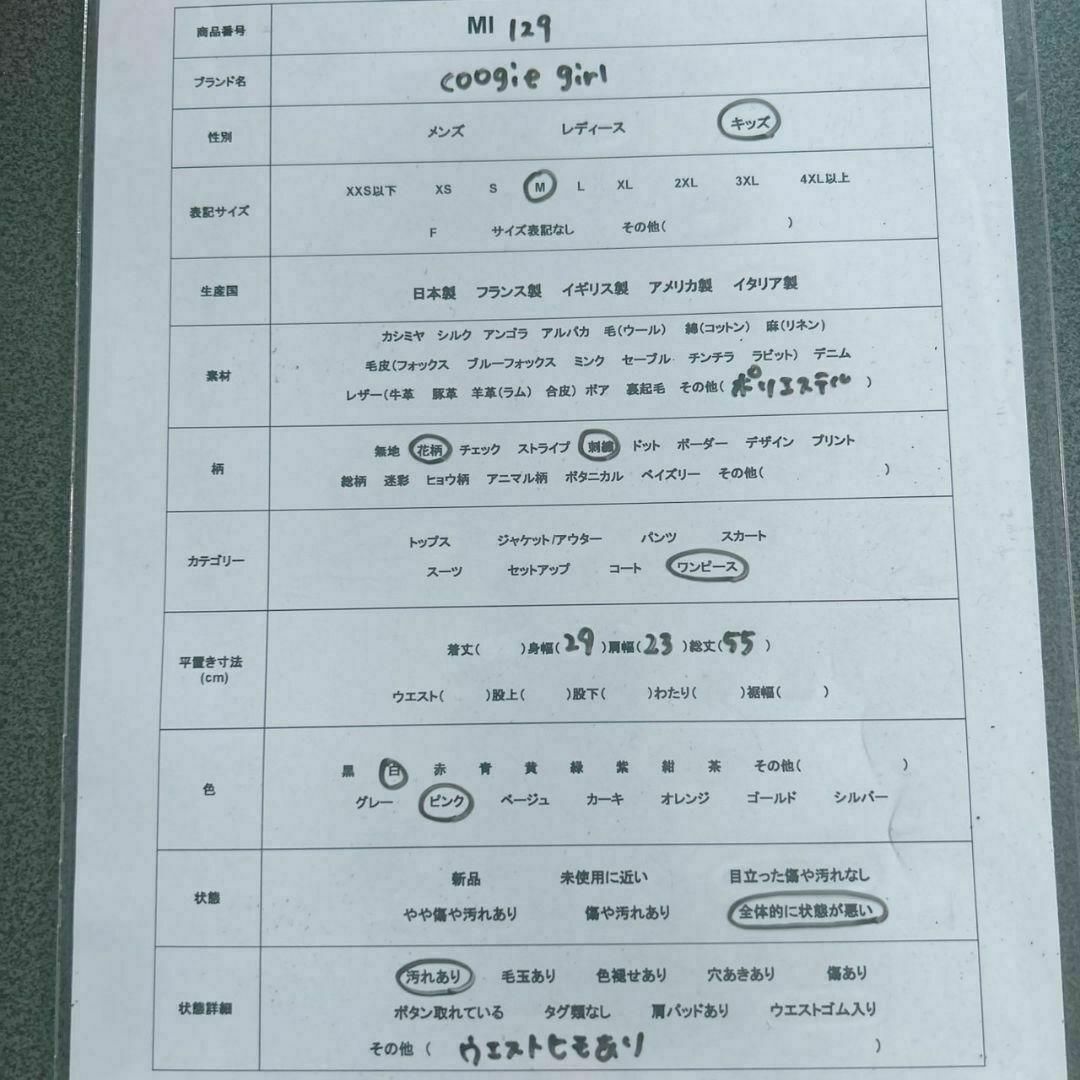 商品番号 MI 129
ブランド名 coogie girl
性別 メンズ レディース キッズ
表記サイズ
XXS以下 XS S M L XL 2XL 3XL 4XL以上
F サイズ表記なし その他( )
生産国 日本製 フランス製 イギリス製 アメリカ製 イタリア製
素材
カシミヤ シルク アンゴラ アルパカ 毛(ウール) 綿(コットン) 麻(リネン)
毛皮(フォックス ブルーフォックス ミンク セーブル チンチラ ラビット) デニム
レザー(牛革 豚革 羊革(ラム) 合皮) ボア 裏起毛 その他( ポリエステル )
柄
無地 花柄 チェック ストライプ 刺繍 ドット ボーダー デザイン プリント
総柄 迷彩 ヒョウ柄 アニマル柄 ボタニカル ペイズリー その他( )
カテゴリー
トップス ジャケット/アウター パンツ スカート
スーツ セットアップ コート ワンピース
平置き寸法
(cm)
着丈( )身幅( 29 )肩幅( 23 )総丈( 55 )
ウエスト( )股上( )股下( )わたり( )裾幅( )
色
黒 白 赤 青 黄 緑 紫 紺 茶 その他( )
グレー ピンク ベージュ カーキ オレンジ ゴールド シルバー
状態
新品 未使用に近い 目立った傷や汚れなし
やや傷や汚れあり 傷や汚れあり 全体的に状態が悪い
状態詳細
汚れあり 毛玉あり 色褪せあり 穴あきあり 傷あり
ボタン取れている タグ類なし 肩パッドあり ウエストゴム入り
その他 ( ウエストヒモあり )